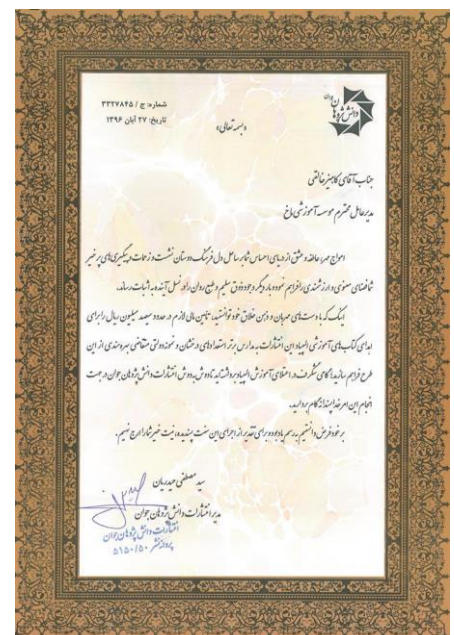 دانش پژوهان جوان
شماره: ج / ۳۳۲۷۸۴۵
تاریخ: ۲۷ آبان ۱۳۹۶
«بسمه تعالی»
جناب آقای کامبیز خالقی
مدیرعامل محترم موسسه آموزشی ماخ
امواج مهر، عاطفه و عشق از دریای احساس شما بر ساحل دل فرهنگ دوستان نشست و زحمات و پیگیری‌های پر خیر
شما فضای معنوی و ارزشمندی را فراهم نمود و بار دیگر وجود ذوق سلیم و طبع روان را در نسل آینده به اثبات رساند.
اینک که با دست‌های مهربان و ذهن خلاق خود توانستید، تامین مالی لازم در حدود سیصد میلیون ریال را برای
اهدای کتاب‌های آموزشی المپیاد این انتشارات به مدارس برتر استعدادهای درخشان و نمونه دولتی متقاضی بهره‌مندی از این
طرح فراهم سازید؛ گامی شگرف در اعتلای آموزش المپیاد برداشته‌اید تا دوش به دوش انتشارات دانش پژوهان جوان در جهت
انجام این امر خداپسندانه گام بردارید.
بر خود فرض دانستیم به رسم یادبود و برای تقدیر از اجرای این سنت پسندیده، نیت خیر شما را ارج نهیم.
سید مصطفی میدریان
مدیر انتشارات دانش پژوهان جوان
انتشارات دانش پژوهان جوان
پروانه نشر ۵۱۵۰/۵۰